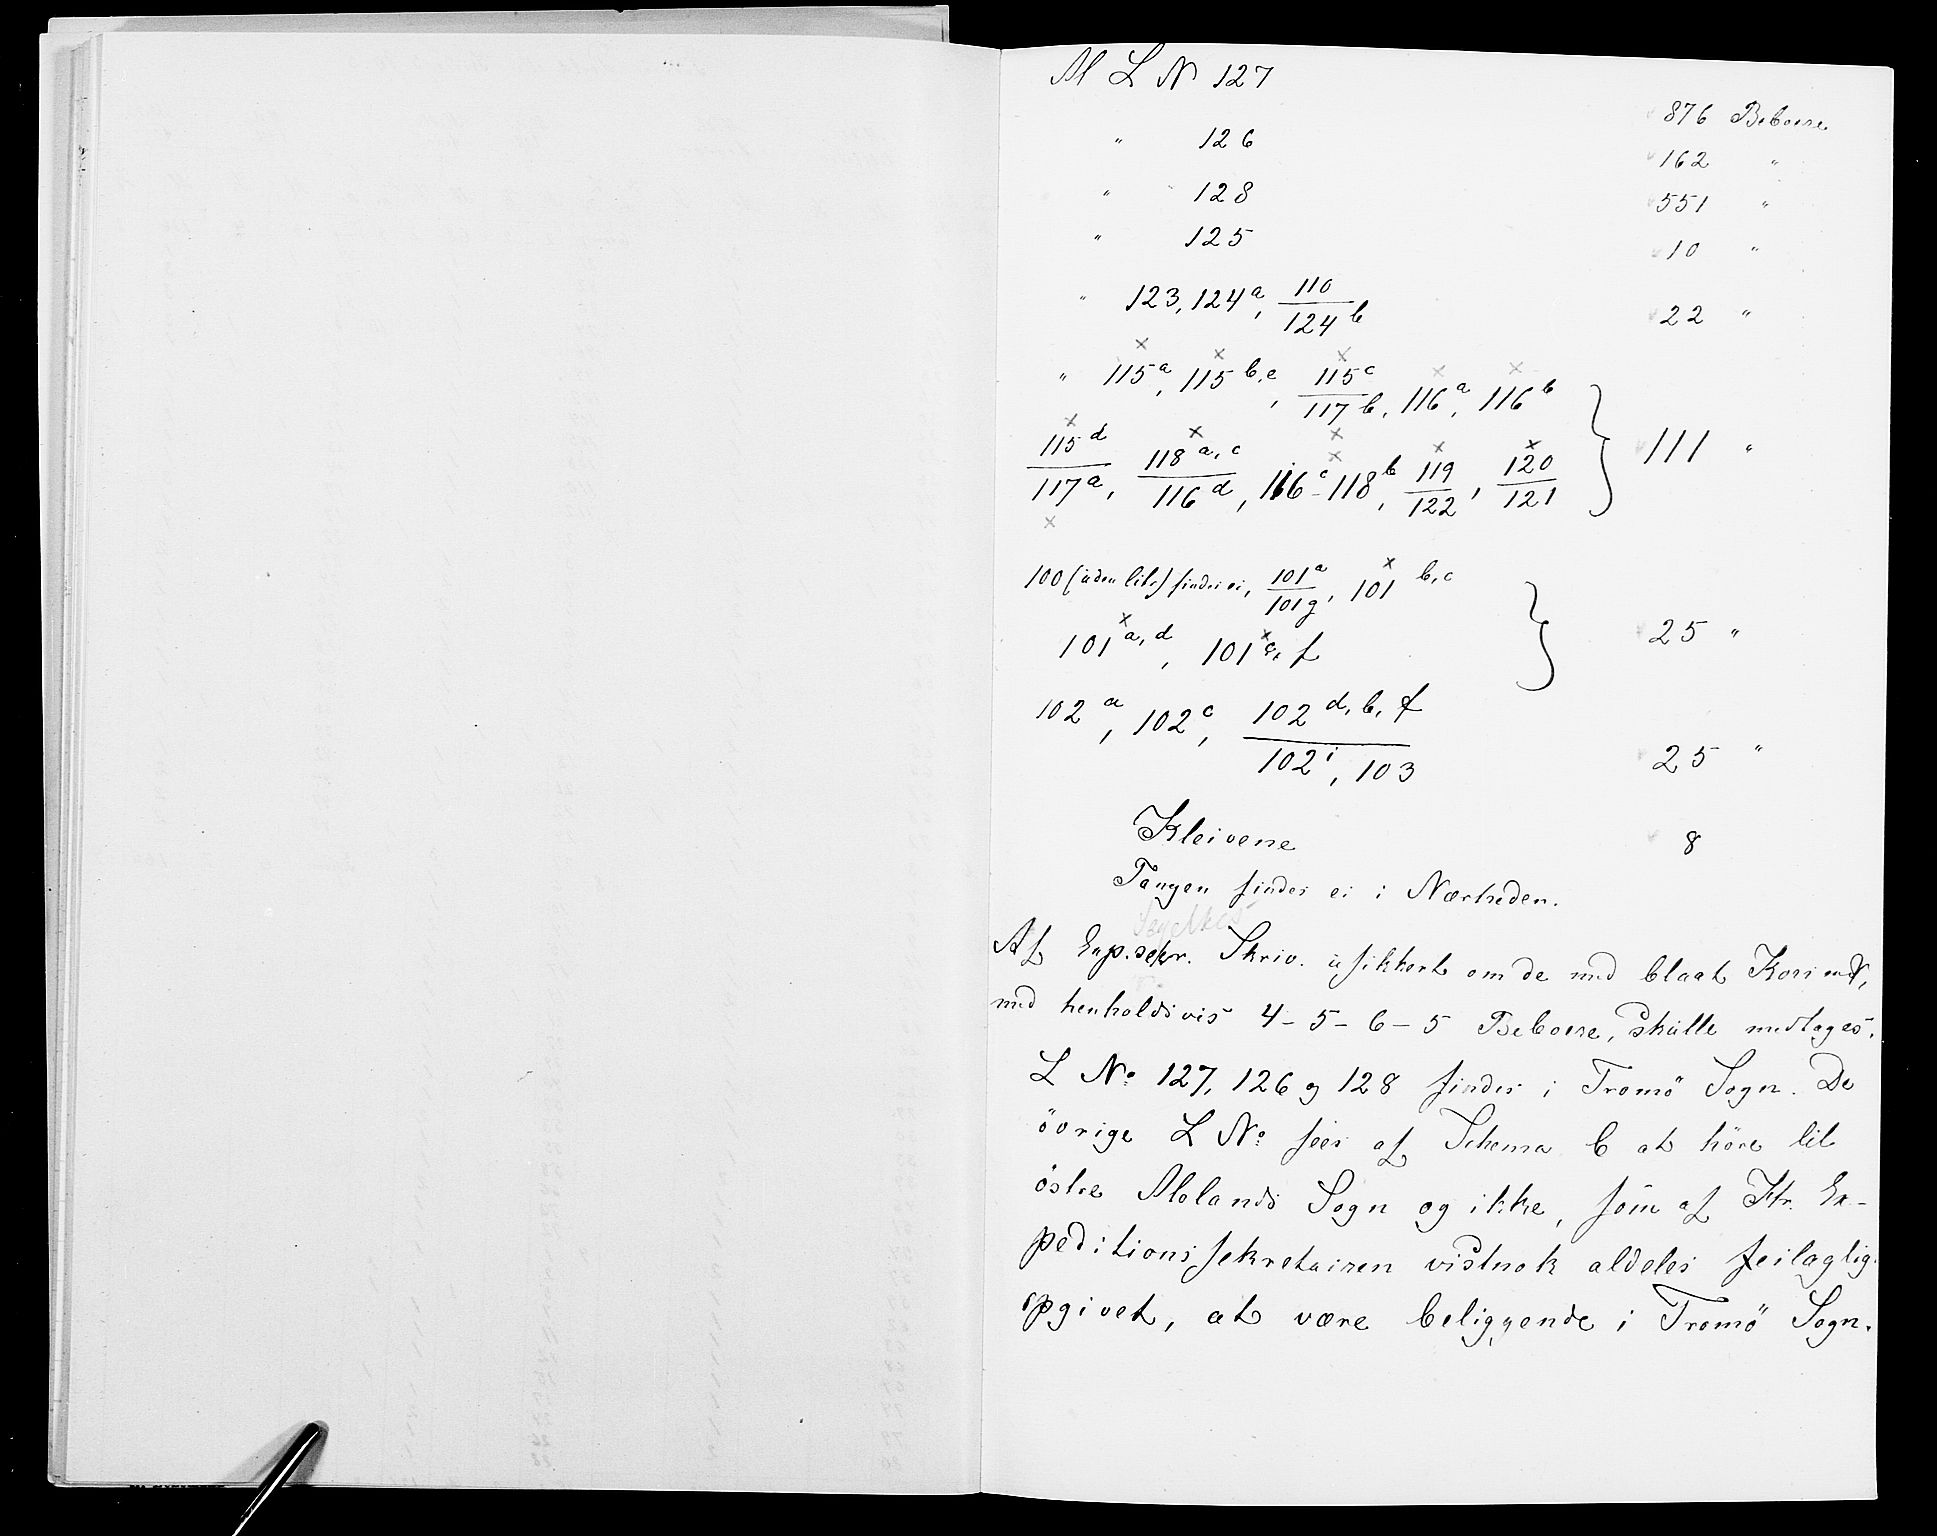 M L N 127
876 Beboere
" 126
162 "
" 128
551 "
" 125
10 "
" 123, 124 a, 110/124 b
22 "
" 115 a, 115 b, e, 115 c/117 b, 116 a, 116 b
115 d/117 a, 118 a, c/116 d, 116 c - 118 b, 119/122, 120/121
111 "
100 (uden litr) findes ei, 101 a/101 g, 101 b, c
101 a, d, 101 e, f
25 "
102 a, 102 c, 102 d, b, f/102 i, 103
25 "
Kleivene
8
Tangen findes ei i Nærheden.
Af Exp.sekr. Skriv. usikkert om de med blaat Kors
med henholdsvis 4 - 5 - 6 - 5 Beboere, skulle medtages.
L No 127, 126 og 128 findes i Tromö Sogn. De
övrige L No sees af Schema 6 at höre til
östre Molands Sogn og ikke, som af Hr. Ex-
peditionssekretairen vistnok aldeles feilagtig
opgivet, at være beliggende i Tromö Sogn.